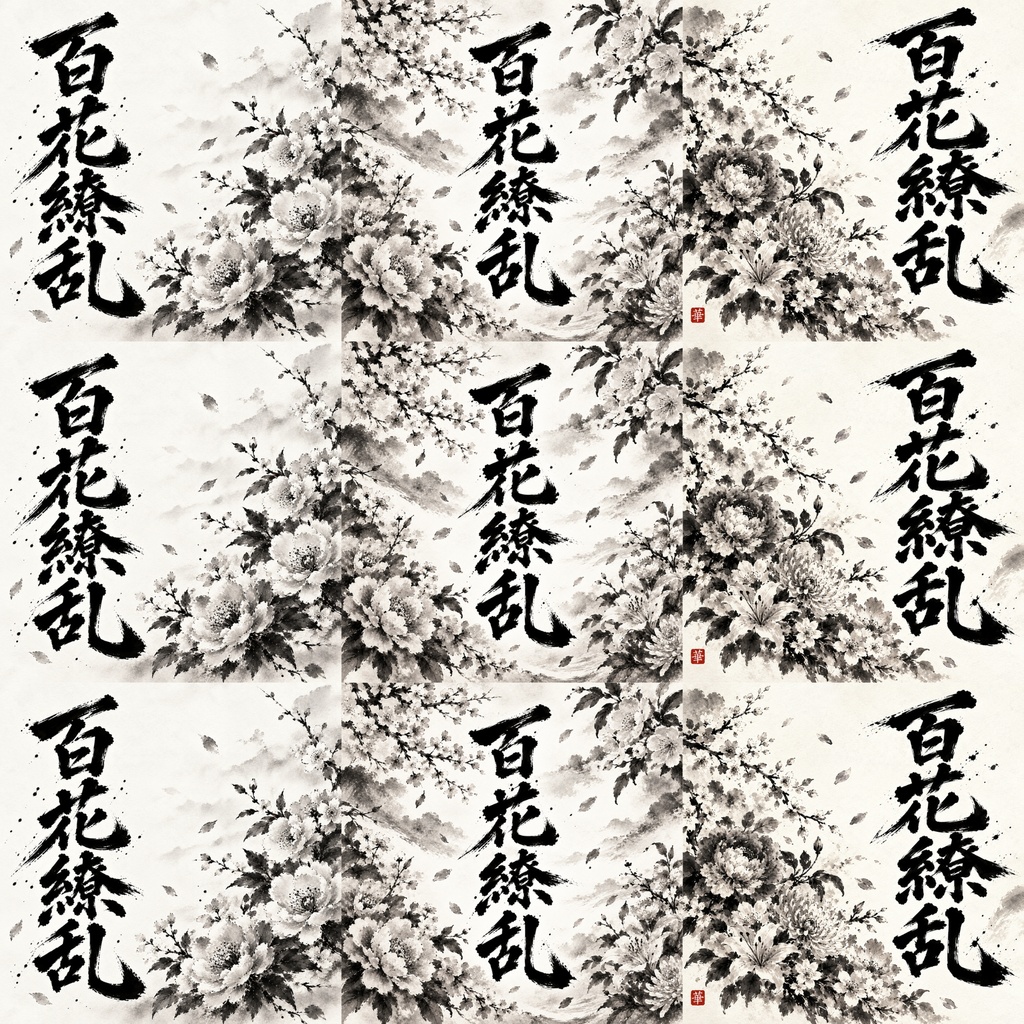 百花繚乱
百花繚乱
華
百花繚乱
百花繚乱
百花繚乱
華
百花繚乱
百花繚乱
百花繚乱
華
百花繚乱